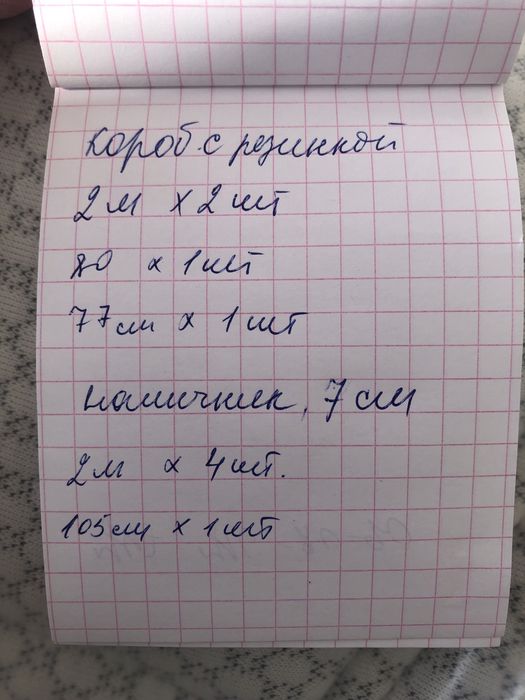 короб с резинкой
2м х 2 шт
80 х 1 шт
77см х 1 шт
наличник, 7 см
2м х 4 шт.
105см х 1 шт